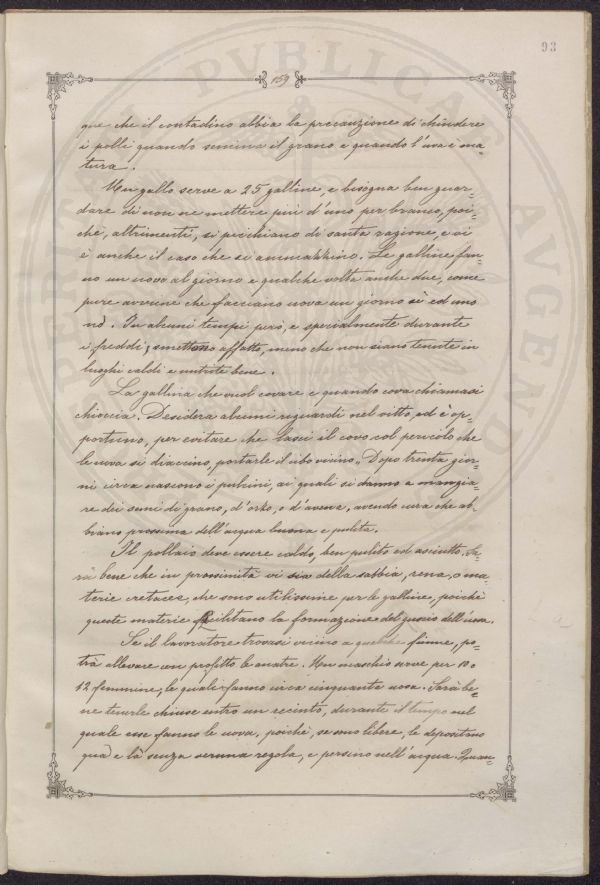 93
159
que che il contadino abbia la precauzione di chiudere
i polli quando semina il grano e quando l'uva è ma=
tura.
Un gallo serve a 25 galline, e bisogna ben guar=
dare di non ne mettere più d'uno per branco, poi=
chè, altrimenti, si picchiano di santa ragione, e vi
è anche il caso che si ammazzino. Le galline fan=
no un uovo al giorno e qualche volta anche due, come
pure avviene che facciano uova un giorno sì ed uno
nò. In alcuni tempi però, e specialmente durante
i freddi, smettono affatto, meno che non siano tenute in
luoghi caldi e nutrite bene.
La gallina che vuol covare e quando cova chiamasi
chioccia. Desidera alcuni riguardi nel vitto, ed è op=
portuno, per evitare che lasci il covo col pericolo che
le uova si diaccino, portarle il cibo vicino. Dopo trenta gior=
ni circa nascono i pulcini, ai quali si danno a mangia=
re dei semi di grano, d'orzo, o d'avena, avendo cura che ab=
biano prossima dell'acqua buona e pulita.
Il pollaio deve essere caldo, ben pulito ed asciutto. Sa=
rà bene che in prossimità vi sia della sabbia, rena, o ma=
terie cretacee, che sono utilissime per le galline, poichè
queste materie facilitano la formazione del guscio dell'uova.
Se il lavoratore trovasi vicino a qualche fiume, po=
trà allevare con profitto le anatre. Un maschio serve per 10 o
12 femmine, le quali fanno circa cinquanta uova. Sarà be=
ne tenerle chiuse entro un recinto, durante il tempo nel
quale esse fanno le uova, poichè, se sono libere, le depositano
quà e là senza veruna regola, e persino nell'acqua. Quan=
PVBLICAE
AVGENDAE